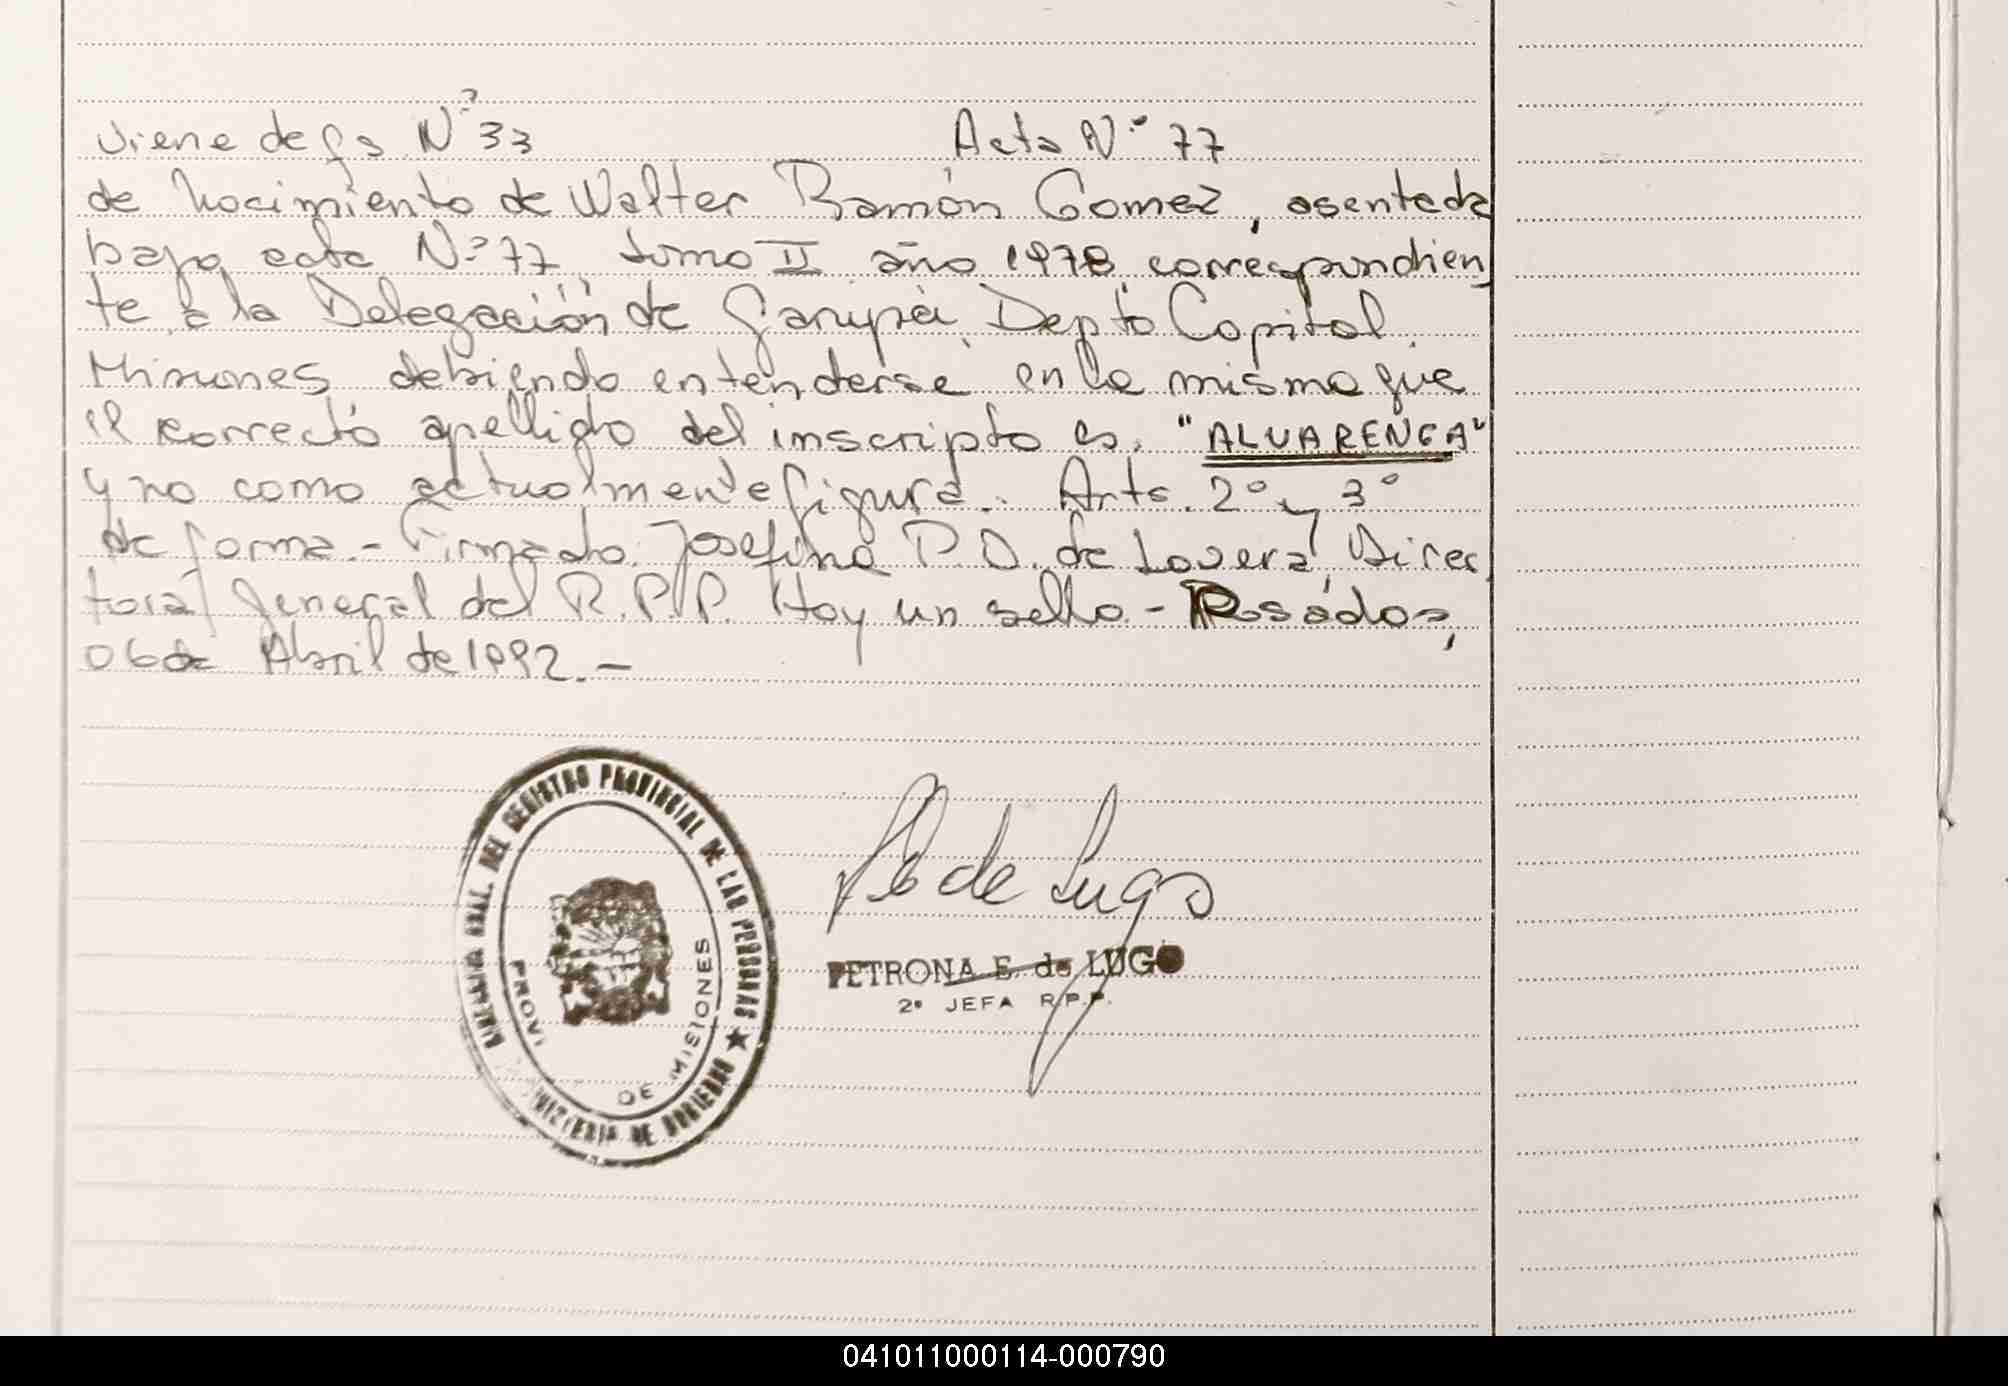 Viene de fs N° 33 Acta N° 77
de Nacimiento de Walter Ramón Gomez, asentada
bajo acta N° 77, tomo II año 1978 correspondien
te a la Delegación de Garupá, Depto Capital
Misiones debiendo entenderse en la misma que
el correcto apellido del inscripto es: "ALVARENGA"
y no como actualmente figura.- Arts. 2° y 3°
de forma.- Firmado. Josefina P.D. de Lovera, Direc
tora General del R.P.P. Hay un sello.- Posadas,
06 de Abril de 1992.-
DIRECCION GRAL. DEL REGISTRO PROVINCIAL DE LAS PERSONAS ★
MINISTERIO DE GOBIERNO
PROVI DE MISIONES
de Lugo
PETRONA E. de LUGO
2° JEFA R.P.P.
041011000114-000790